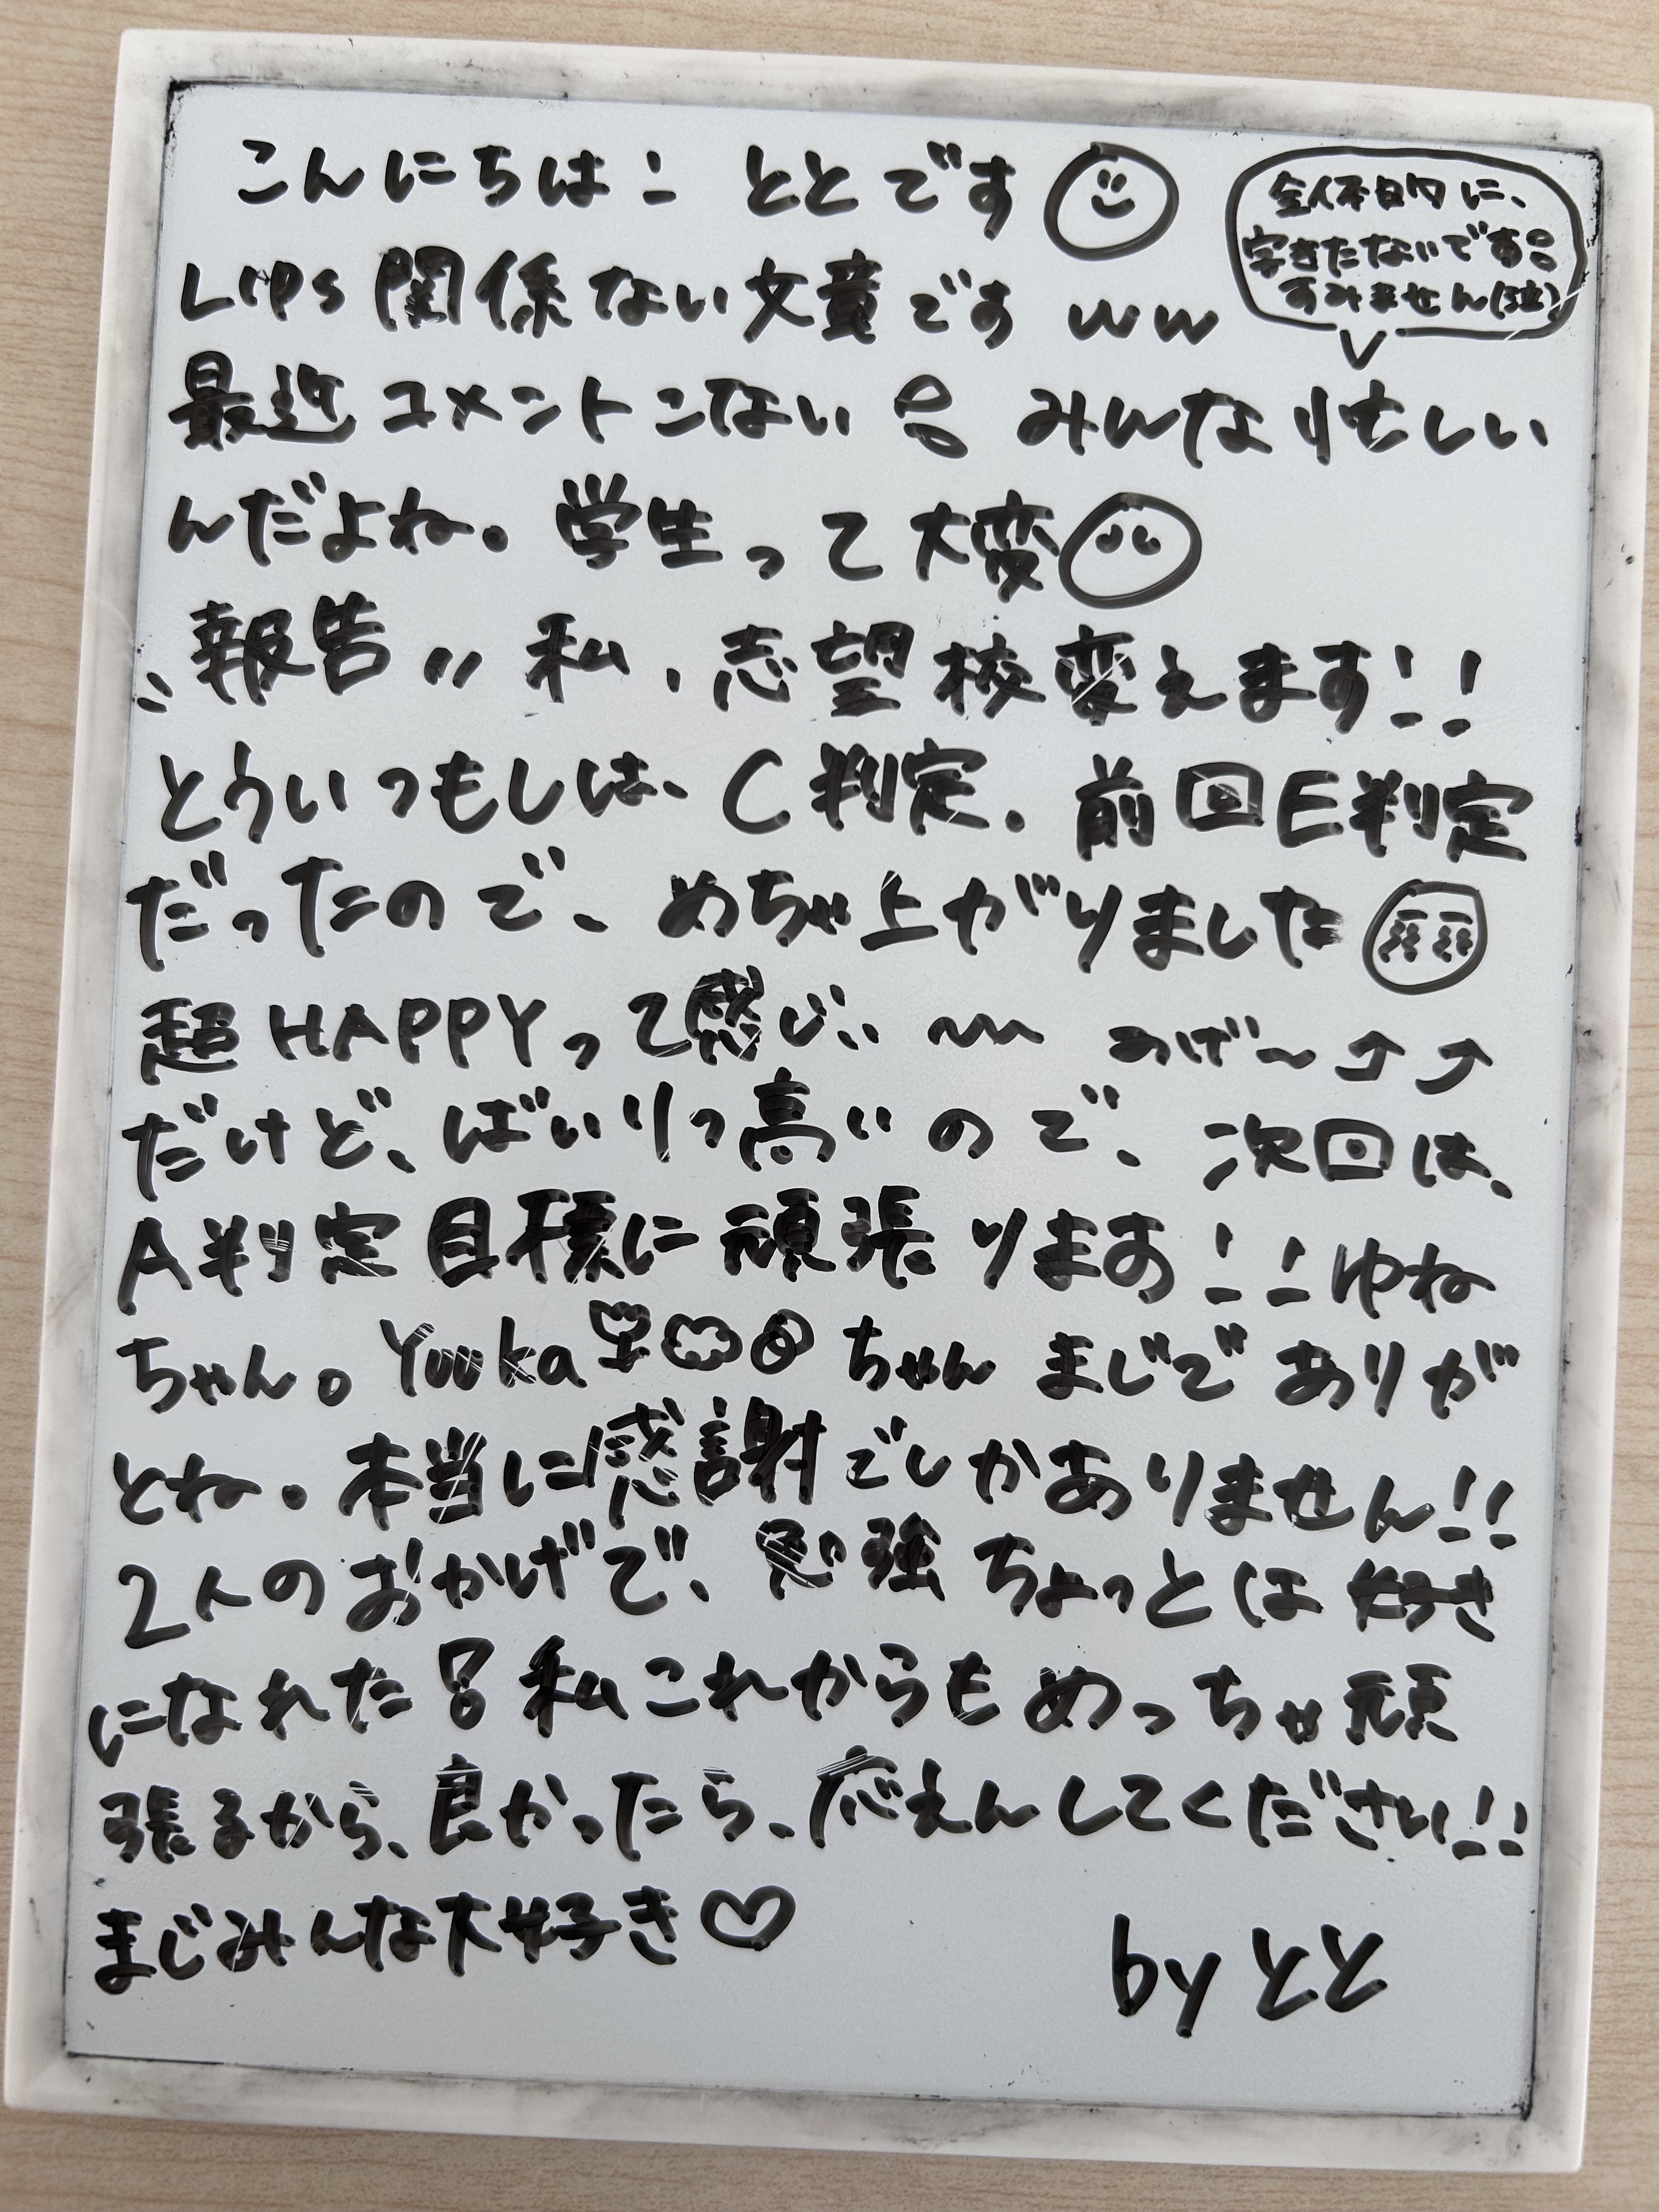 こんにちは! ととです
全体的に、
字きたないです。
すみません(泣)
Lips関係ない文章です ww
最近コメントこない。 みんな忙しい
んだよね。学生って大変
"報告" 私、志望校変えます!!
とういつもしは、C判定。前回E判定
だったので、めちゃ上がりました
超HAPPYって感じ、、〜〜 あげ〜〜⤴⤴
だけど、ばいりつ高いので、次回は、
A判定目標に頑張ります!!ゆね
ちゃん。Yuukaちゃんまじでありが
とね。本当に感謝でしかありません!!
2人のおかげで、勉強ちょっとは好き
になれた! 私これからもめっちゃ頑
張るから、良かったら、応えんしてください!!
まじみんな大好き♡
by とと